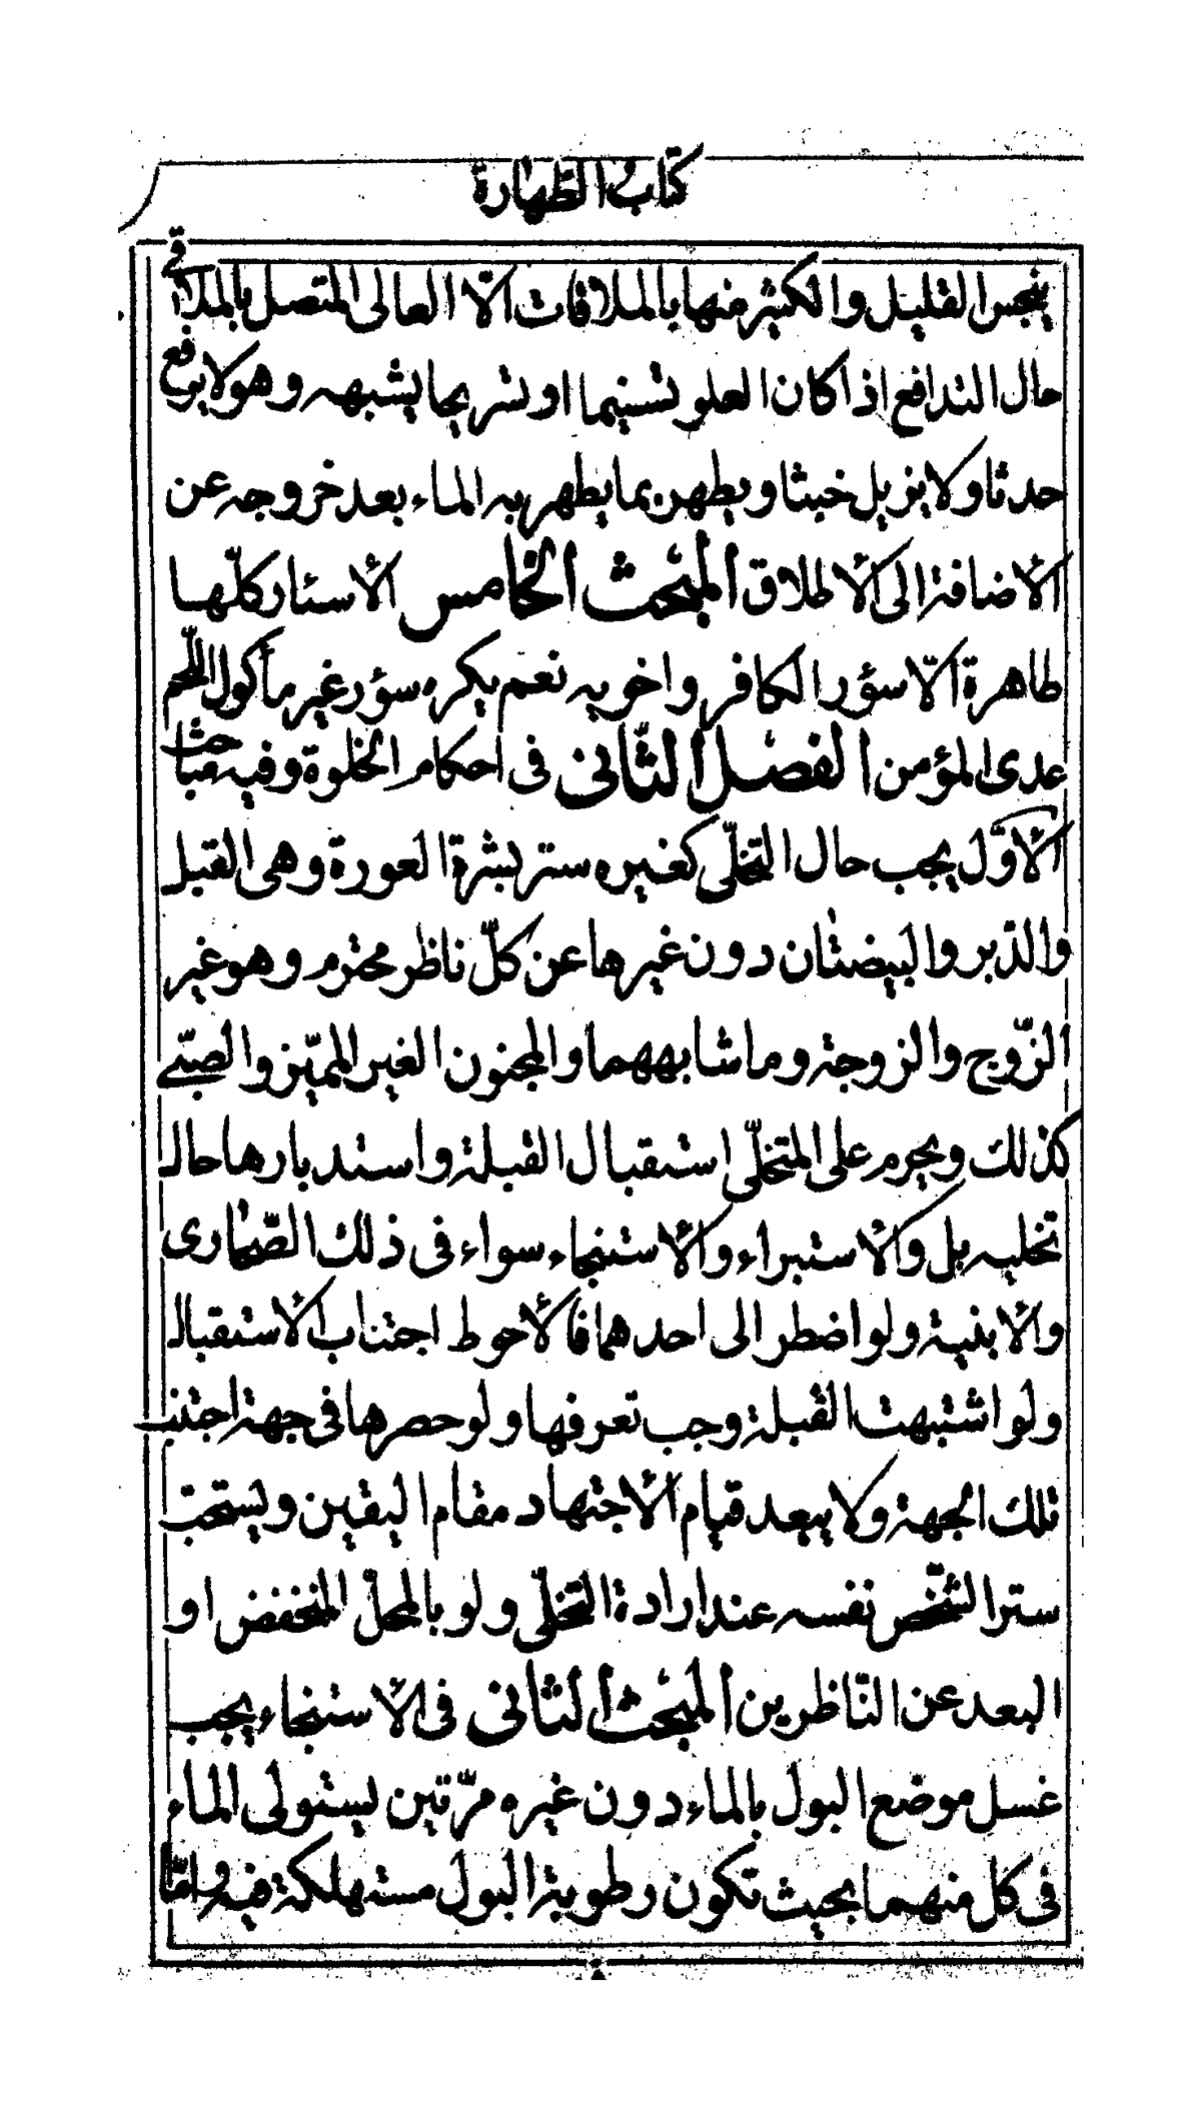 كتاب الطهارة
ينجس القليل والكثير منها بالملاقات الّا العالى المتصل بالملاقى
حال التدافع اذا كان العلو تسنيما او تسريحا يشبهه وهو لا يرفع
حدثا ولا يزيل خبثا ويطهر بما يطهر به الماء بعد خروجه عن
الأضافة الى الأطلاق المبحث الخامس الأسئار كلّها
طاهرة الّا سؤر الكافر واخويه نعم يكره سؤر غير مأكول اللّحم
عدى المؤمن الفصل الثّانى فى احكام الخلوة وفيه مباحث
الأوّل يجب حال التخلّى كغيره ستر بشرة العورة وهى القبل
والدّبر والبيضتان دون غيرها عن كلّ ناظر محترم وهو غير
الزّوج والزوجة وما شابههما والمجنون الغير المميّز والصبّى
كذلك ويحرم على المتخلّى استقبال القبلة واستدبارها حال
تخليه بل والأستبراء والأستنجاء سواء فى ذلك الصّحارى
والأبنية ولو اضطر الى احدهما فالأحوط اجتناب الأستقبال
ولو اشتبهت القبلة وجب تعرفها ولو حصرها فى جهة اجتنب
تلك الجهة ولا يبعد قيام الأجتهاد مقام اليقين ويستحبّ
ستر الشّخص نفسه عند ارادة التخلّى ولو بالمحلّ المنخفض او
البعد عن النّاظرين المبحث الثانى فى الأستنجاء يجب
غسل موضع البول بالماء دون غيره مرّتين يستولى الماء
فى كل منهما بحيث تكون رطوبة البول مستهلكة فيه وامّا